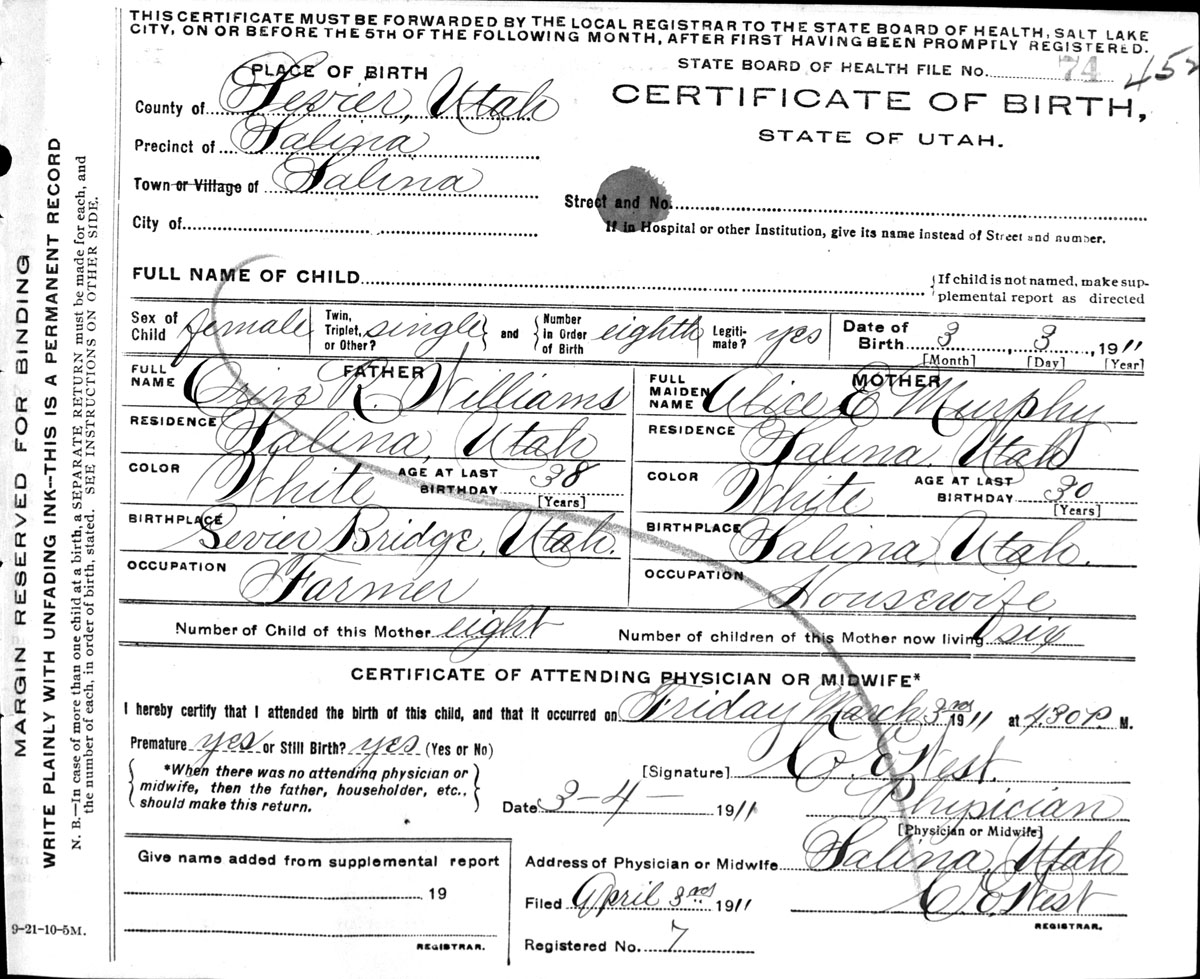 THIS CERTIFICATE MUST BE FORWARDED BY THE LOCAL REGISTRAR TO THE STATE BOARD OF HEALTH, SALT LAKE
CITY, ON OR BEFORE THE 5TH OF THE FOLLOWING MONTH, AFTER FIRST HAVING BEEN PROMPTLY REGISTERED.
PLACE OF BIRTH
STATE BOARD OF HEALTH FILE No. 74 452
County of Sevier, Utah
CERTIFICATE OF BIRTH,
STATE OF UTAH.
Precinct of Salina
Town or Village of Salina
Street and No.
City of
If in Hospital or other Institution, give its name instead of Street and number.
FULL NAME OF CHILD
If child is not named, make sup-
plemental report as directed
Sex of Child female Twin, Triplet, or Other? single and Number in Order of Birth eighth Legiti-mate? yes Date of Birth 3, 3, 1911
[Month] [Day] [Year]
FATHER
FULL NAME Orin R. Williams
RESIDENCE Salina, Utah
COLOR White AGE AT LAST BIRTHDAY 38
[Years]
BIRTHPLACE Sevier Bridge, Utah.
OCCUPATION Farmer
MOTHER
FULL MAIDEN NAME Alice E Murphy
RESIDENCE Salina, Utah
COLOR White AGE AT LAST BIRTHDAY 30
[Years]
BIRTHPLACE Salina, Utah.
OCCUPATION Housewife
Number of Child of this Mother eight Number of children of this Mother now living six
CERTIFICATE OF ATTENDING PHYSICIAN OR MIDWIFE*
I hereby certify that I attended the birth of this child, and that it occurred on Friday March 3rd 1911 at 4.30 P. M.
Premature yes or Still Birth? yes (Yes or No)
*When there was no attending physician or
midwife, then the father, householder, etc.,
should make this return.
[Signature] C. E. West.
Date 3-4- 1911 Physician
[Physician or Midwife]
Address of Physician or Midwife Salina, Utah
Filed April 3rd 1911 C. E. West
REGISTRAR.
Registered No. 7
Give name added from supplemental report
19
REGISTRAR.
MARGIN RESERVED FOR BINDING
WRITE PLAINLY WITH UNFADING INK—THIS IS A PERMANENT RECORD
N. B.—In case of more than one child at a birth, a SEPARATE RETURN must be made for each, and
the number of each, in order of birth, stated. SEE INSTRUCTIONS ON OTHER SIDE.
9-21-10-5M.